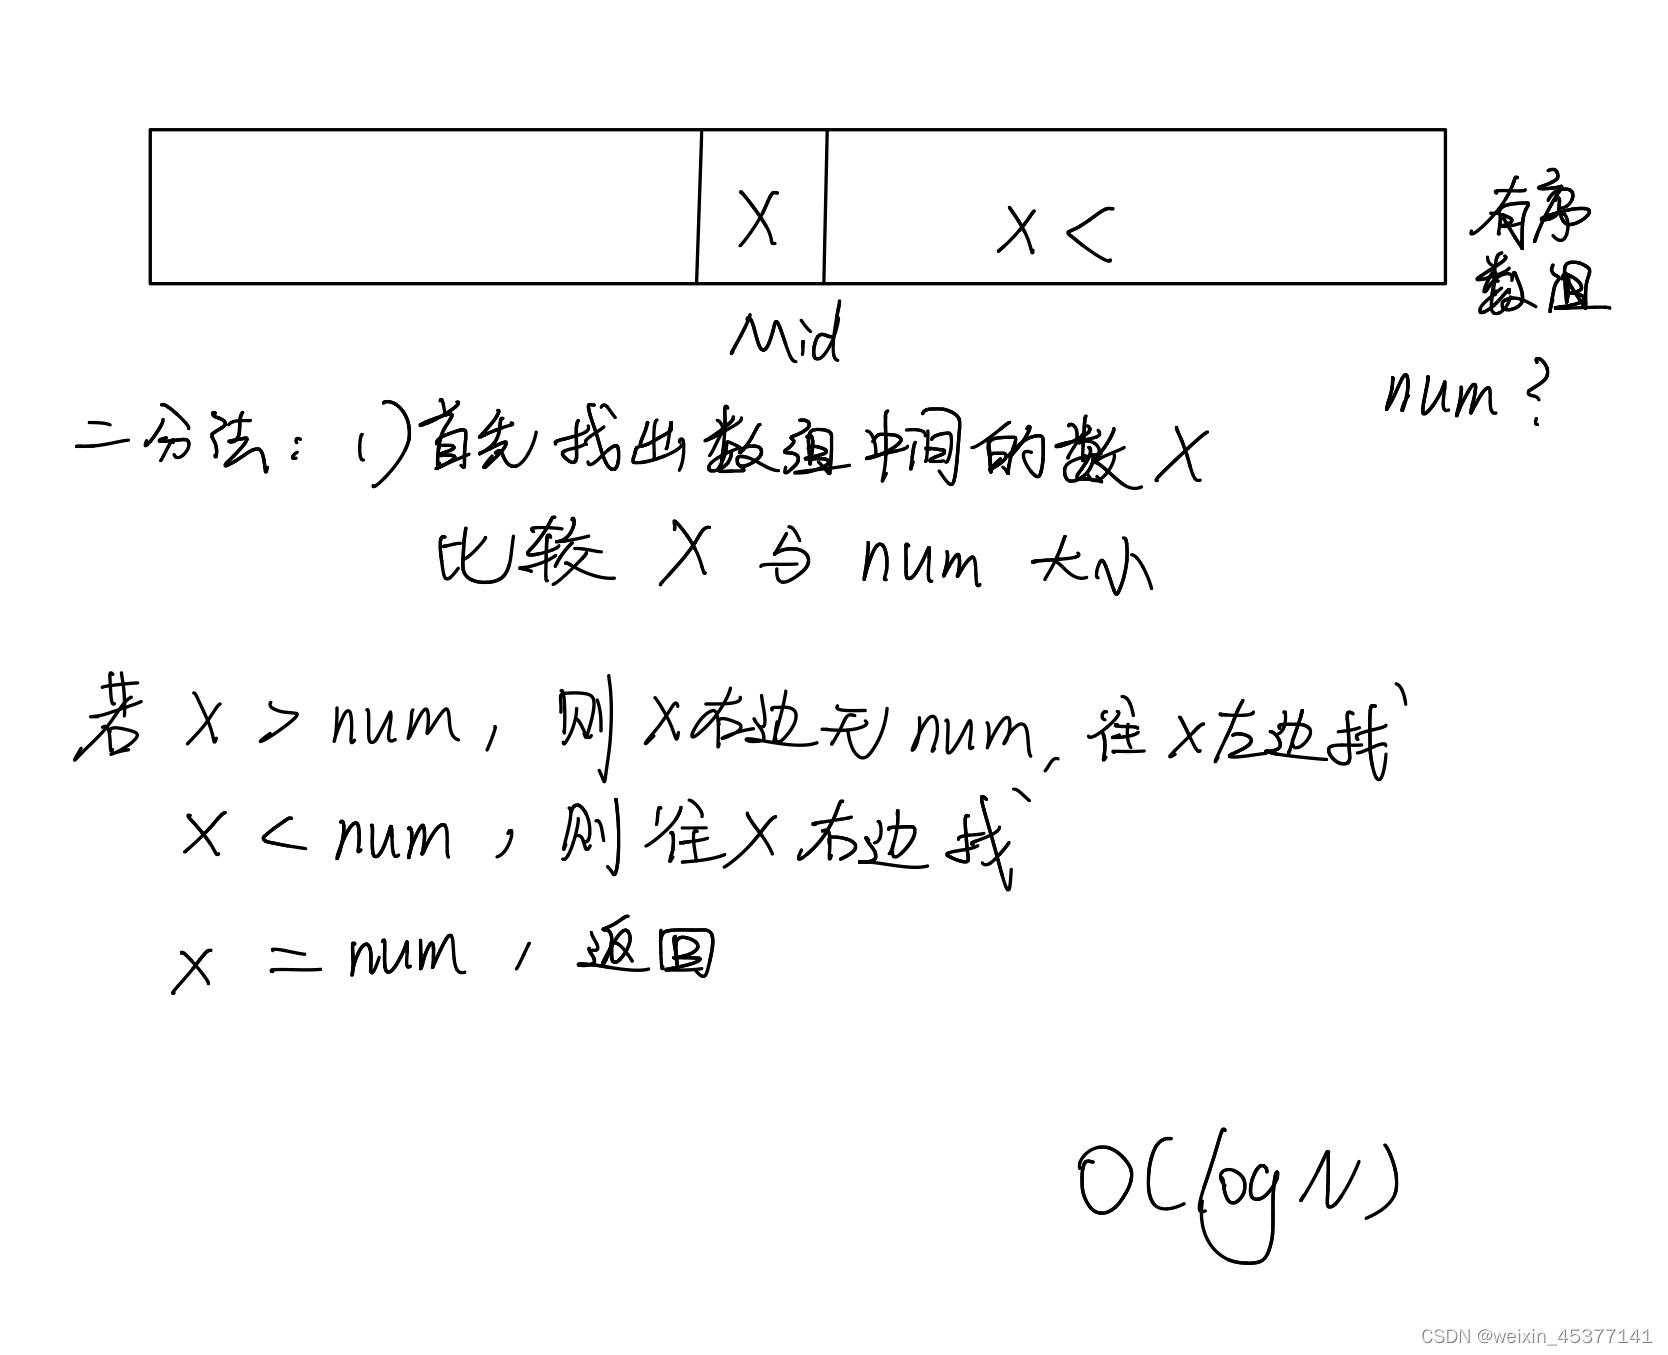 X
X <
有序
数组
Mid
num ?
二分法: 1)首先找出数组中间的数X
比较 X 与 num 大小
若 X > num, 则 X右边无 num, 往X左边找
X < num, 则往X右边找
X = num, 返回
O(logN)
CSDN @weixin_45377141